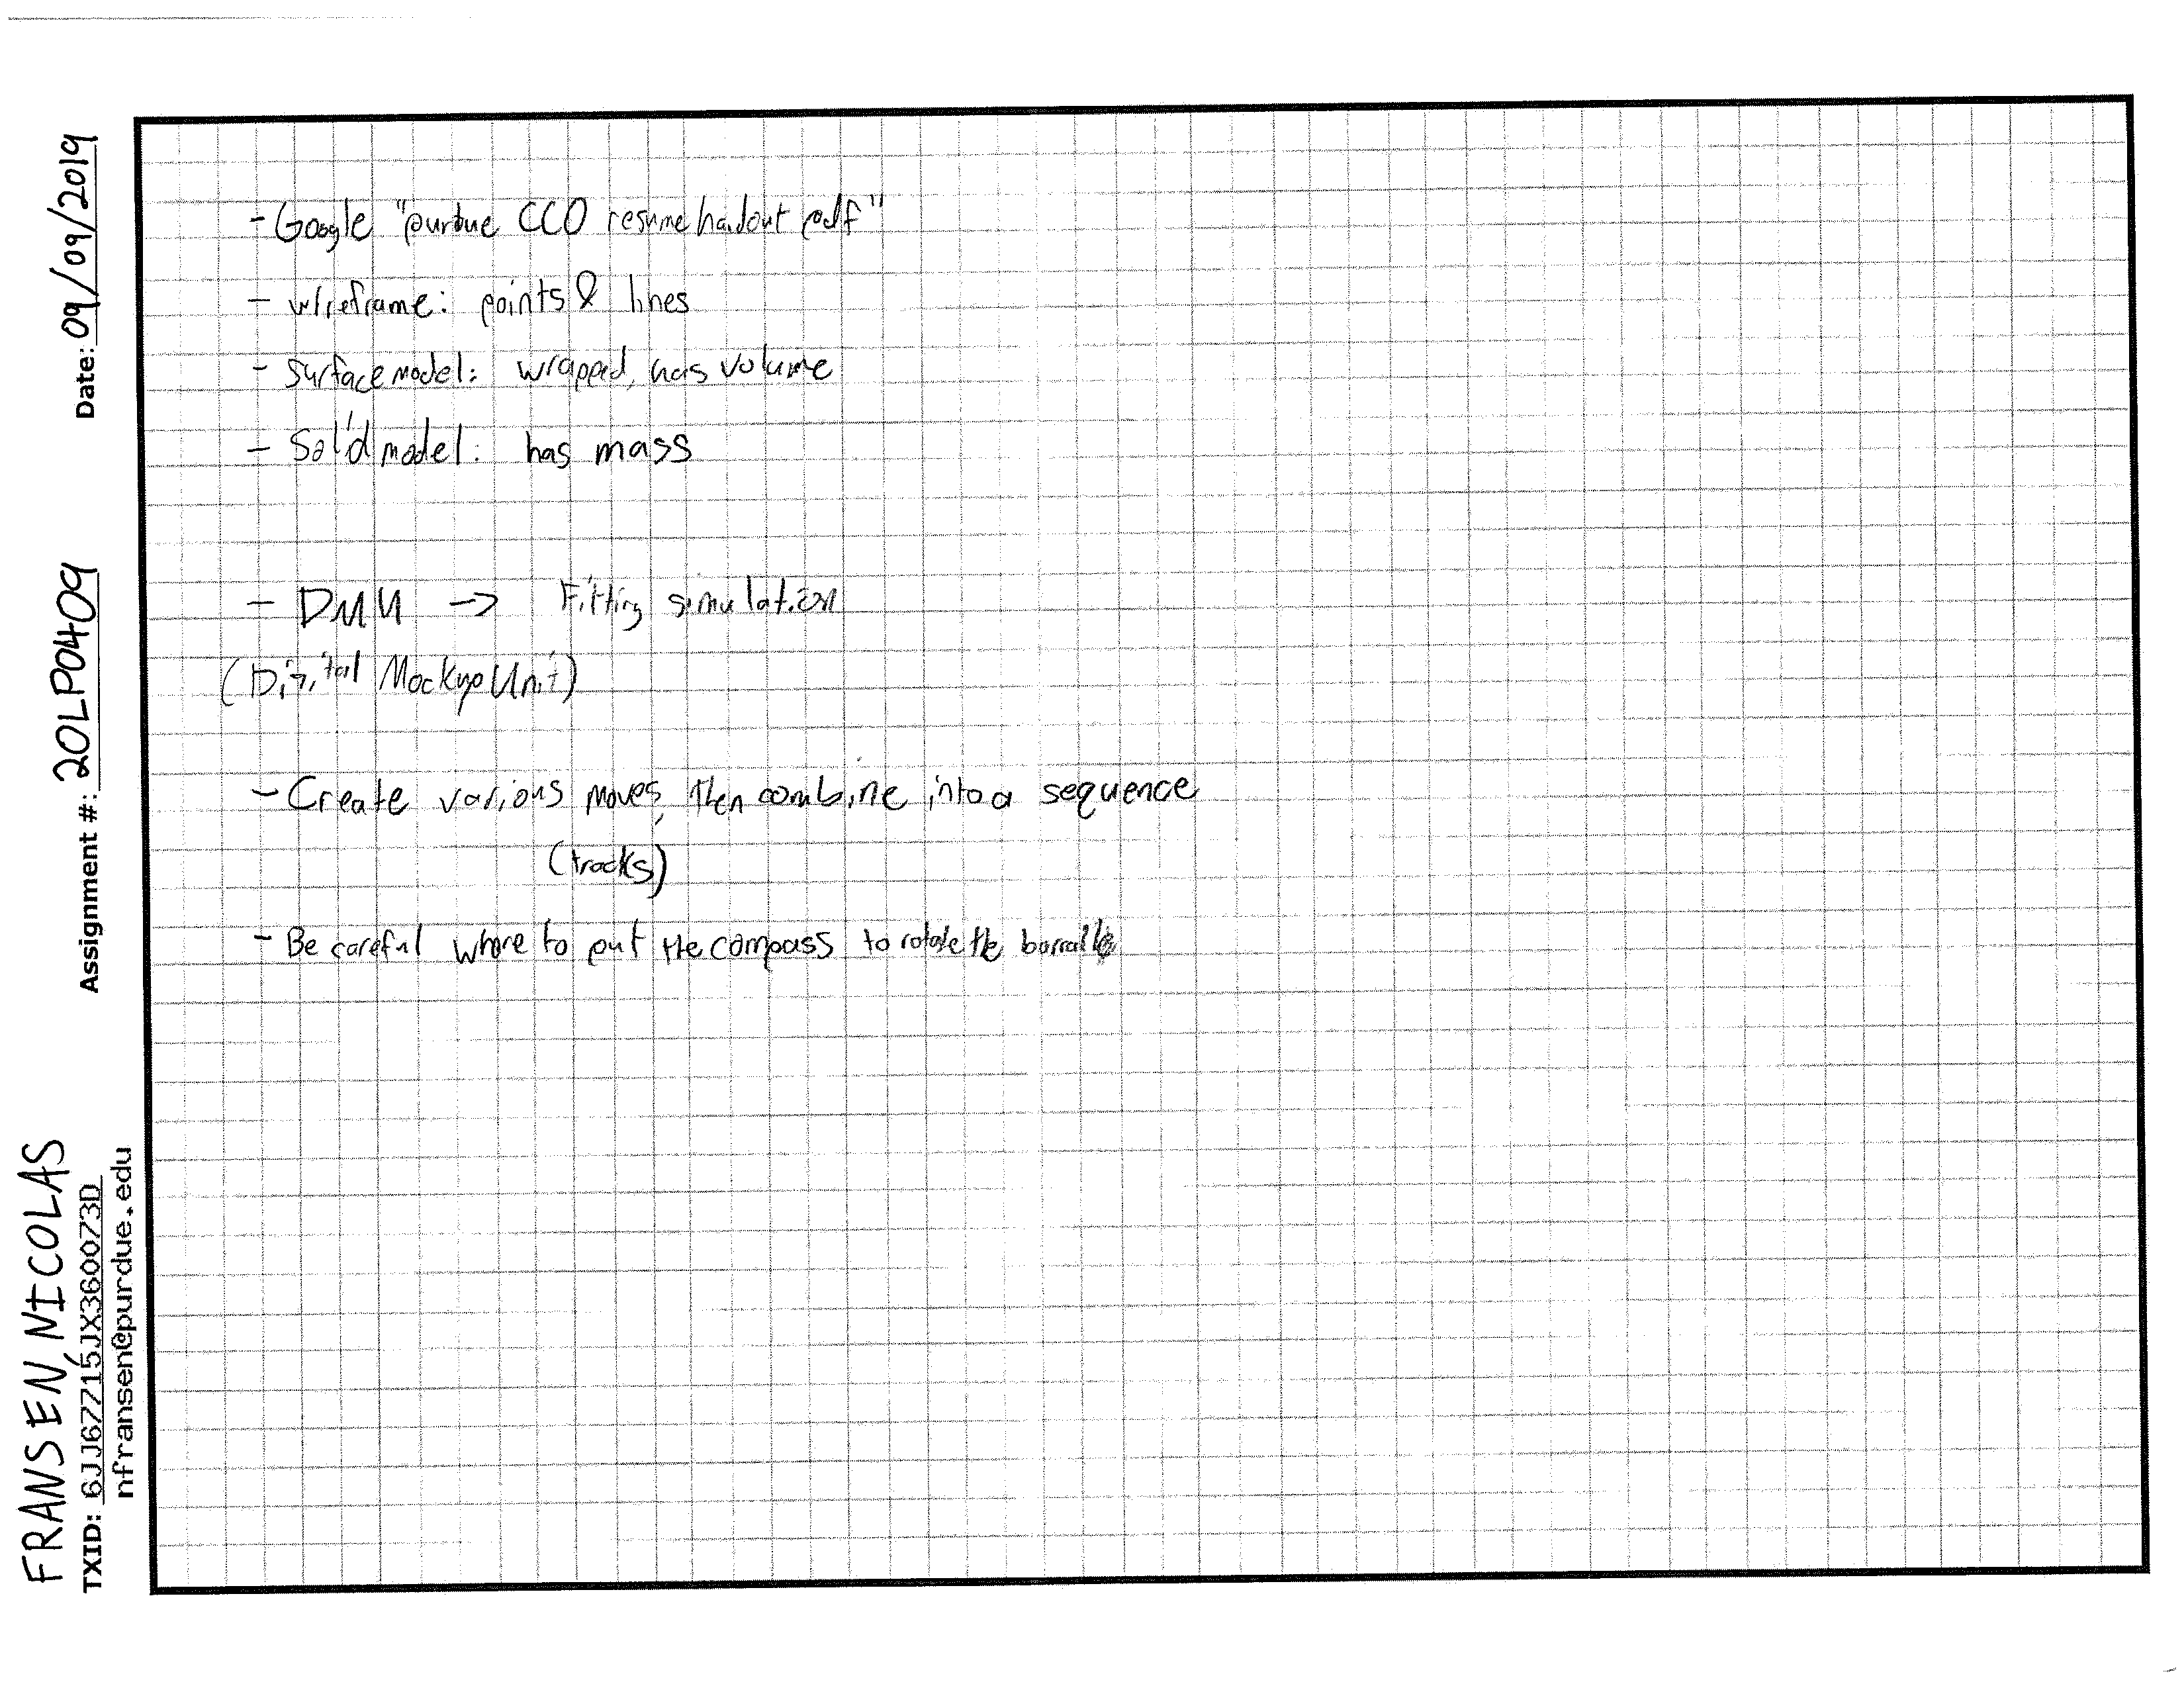 - Google "purdue CCO resume handout pdf"
- wireframe: points & lines
- Surface model: wrapped, has volume
- Solid model: has mass
- DMU -> Fitting simulation
(Digital Mockup Unit)
- Create various moves, then combine into a sequence
(tracks)
- Be careful where to put the compass to rotate the
Date: 09/09/2019
Assignment #: 20LP0409
FRANSEN, NICOLAS
TXID: 6JJ6ZZ15JX3600Z3D
nfransen@purdue.edu